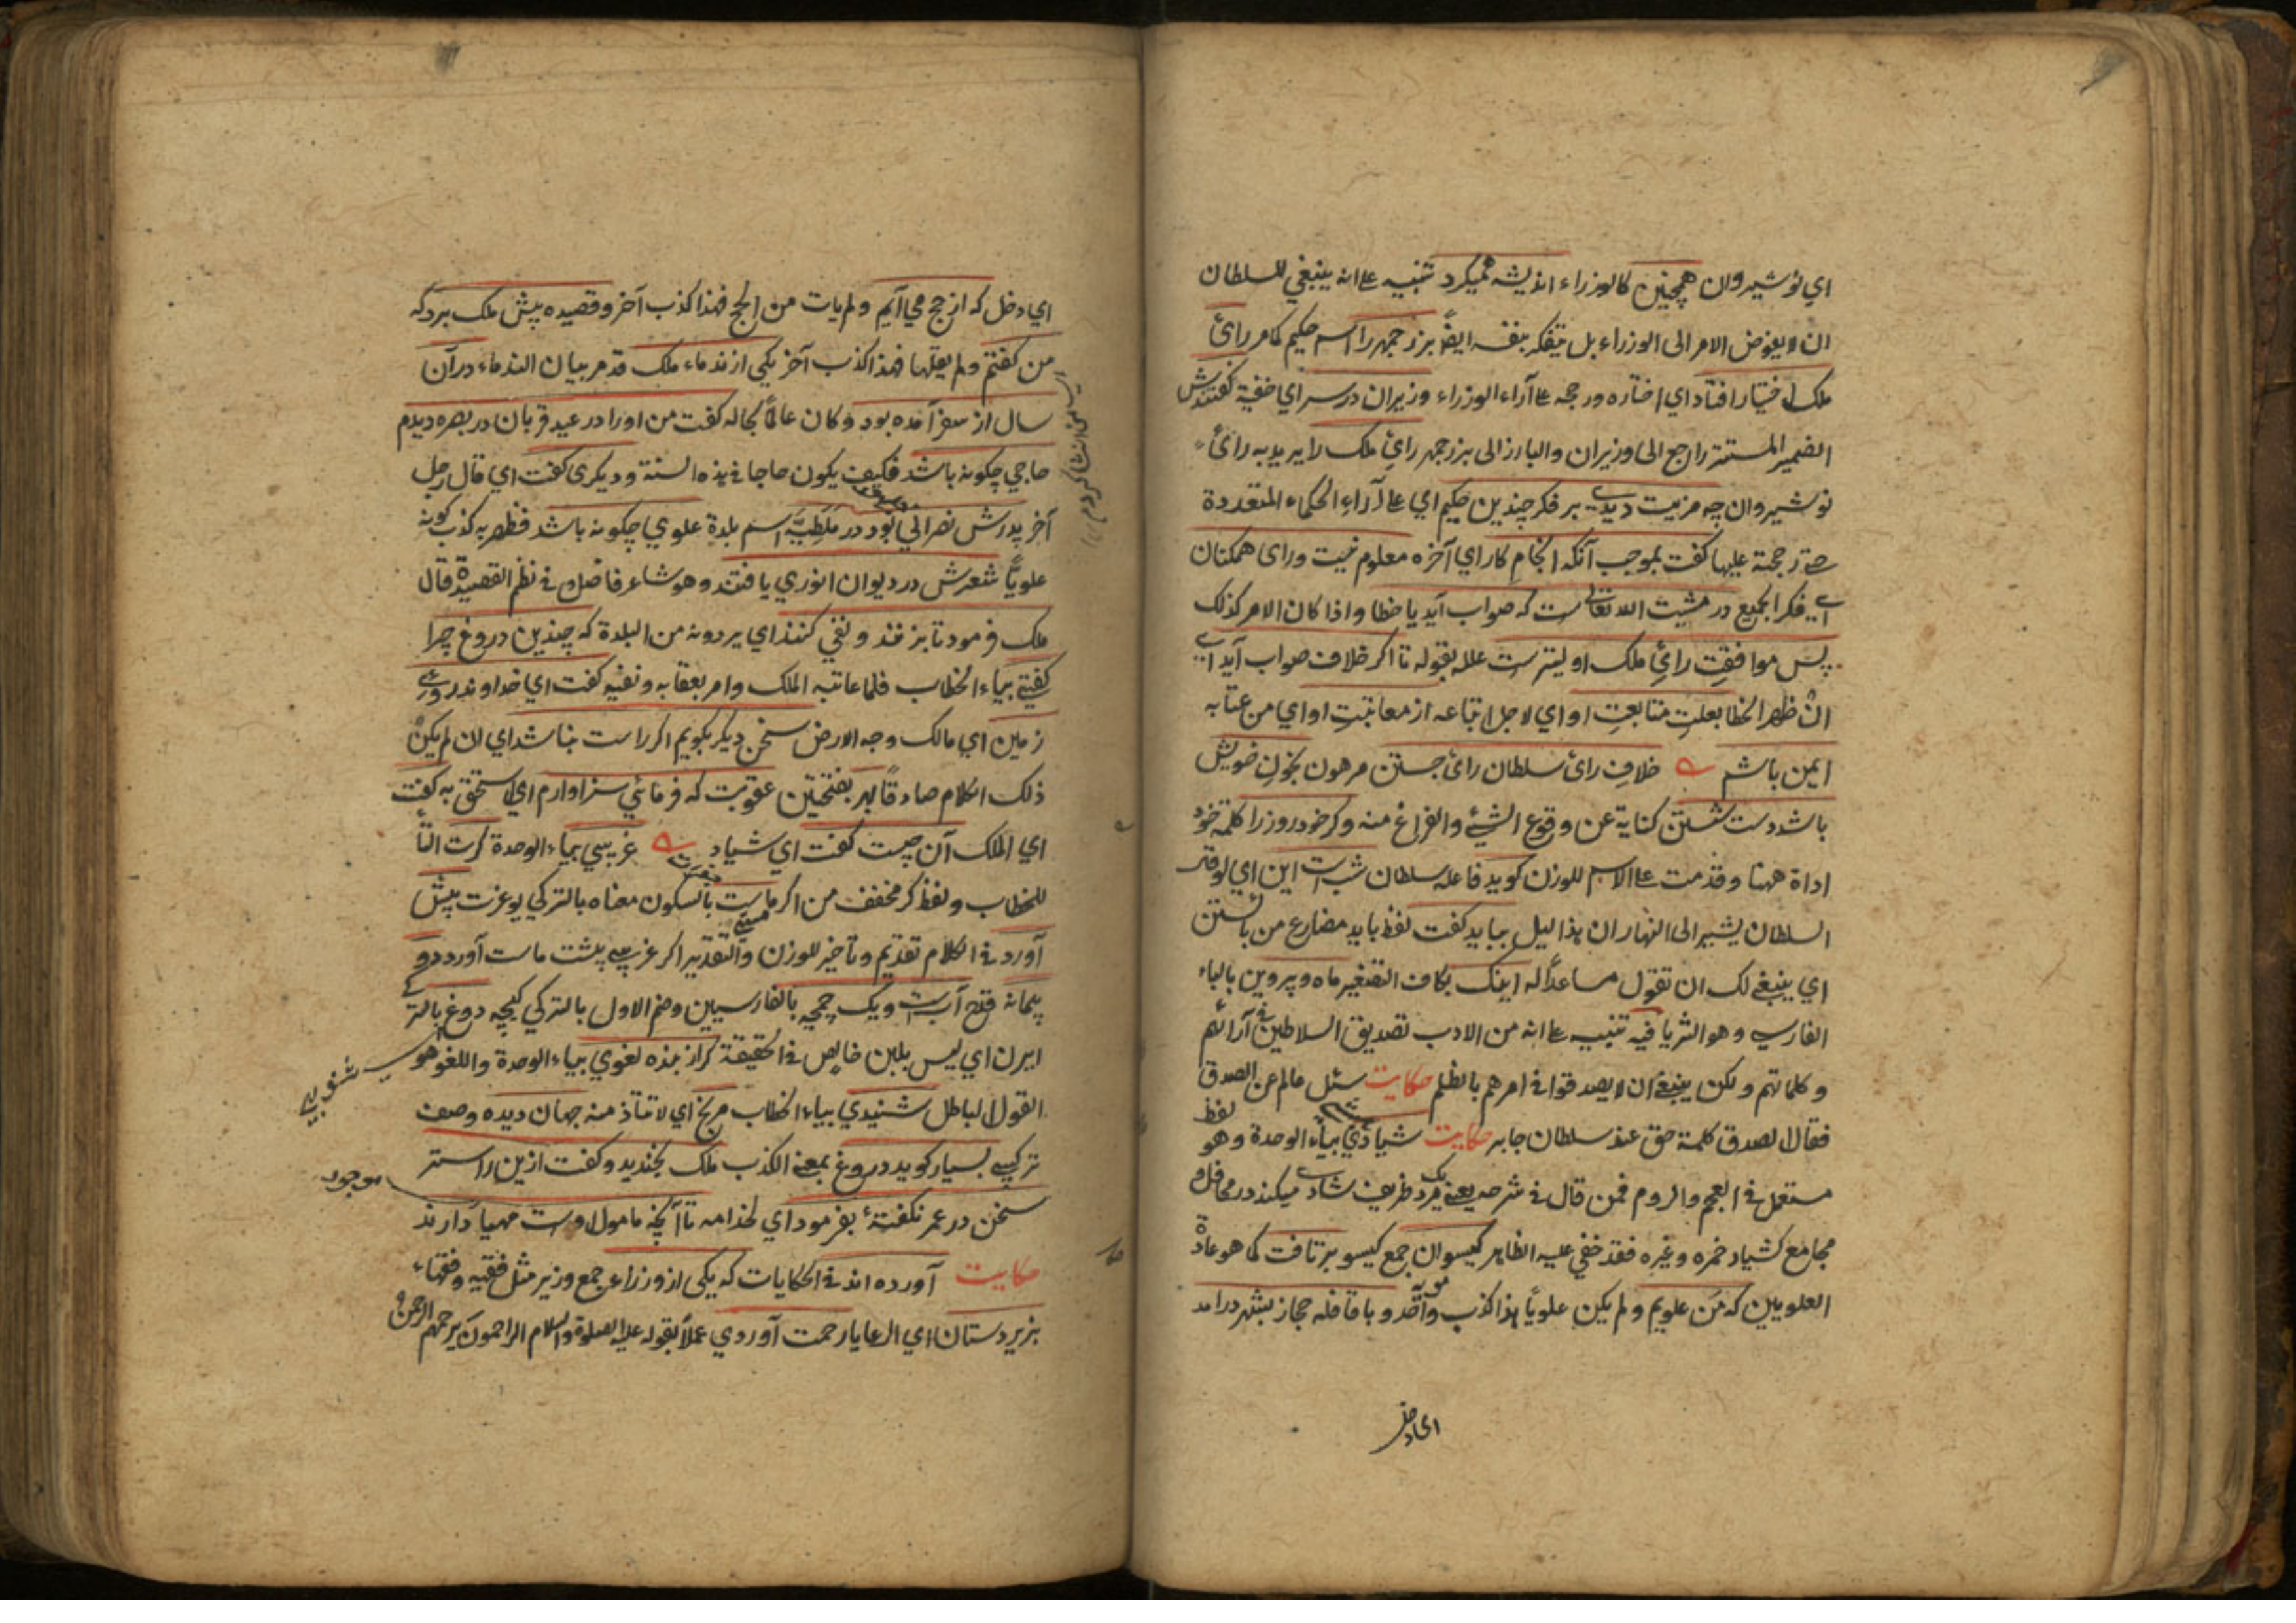 اي نوشيروان همچنين كالوزراء انديشه هميكرد تنبيه على انه ينبغي للسلطان
ان لا يفوض الامر الى الوزراء بل يتفكر بنفسه ايضاً بزرجمهر را اسم حكيم كامر رائ
ملك اختيار افتاد اي اختاره ورجحه على آراء الوزراء وزيران در سر اي خفية كفتندش
الضمير المستتر راجع الى وزيران والبارز الى بزرجمهر رائ ملك را يريد به رائ
نوشيروان چه مزيت ديدي بر فكر چندين حكيم اي على آراء الحكماء المتعددة
حتى رجحته عليها كفت بموجب آنكه انجام كار اي آخره معلوم نيست وراى همكنان
اي فكر الجميع در مشيت الله تعالى است كه صواب آيد يا خطا واذا كان الامر كذلك
پس موافقت رائ ملك اوليترست علله بقوله تا اكر خلاف صواب آيد اي
ان ظهر الخطا بعلت متابعت او اي لاجل اتباعه از معاتبت او اي من عتابه
ايمن باشم خلاف رائ سلطان رائ جستن مرهون بخون خويش
باشد دست شستن كناية عن وقوع الشئ والفراغ منه وكر خود روز را كلمة خود
اداة ههنا وقدمت على الاسم للوزن كويد فاعله سلطان شبست اين اي لو قال
السلطان يشير الى النهار ان هذا ليل ببايد كفت لفظ بايد مضارع من بائستن
اي ينبغي لك ان تقول مساعداً له اينك بكاف التصغير ماه وپروين بالباء
الفارسي وهو الثريا فيه تنبيه على انه من الادب تصديق السلاطين في آرائهم
وكلماتهم ولكن ينبغي ان لا يصدقوا في امرهم بالظلم حكايت سئل عالم عن الصدق
فقال الصدق كلمة حق عند سلطان جابر حكايت شيادي بياء الوحدة وهو لفظ
مستعمل في العجم والروم فمن قال في شرحه يعني يك مرد ظريف شادي ميكند در محافل و
مجامع كشياد خمره وغيره فقد خفي عليه الظاهر كيسوان جمع كيسو برتافت كما هو عادة
العلويين كه من علويم ولم يكن علوياً هذا كذب واحد و با قافله حجاز بشهر درامد
اى دخل
اي دخل كه از حج مي آيم ولم يات من الحج فهذا كذب آخر و قصيده پيش ملك برد كه
من كفتم ولم يقلها فهذا كذب آخر يكي از ندماء ملك قد مر بيان الندماء در آن
سال از سفر آمده بود وكان عالماً بحاله كفت من او را در عيد قربان در بصره ديدم
حاجي چكونه باشد فكيف يكون حاجا في هذه السنة وديكرى كفت اي قال رجل
آخر پدرش نصراني بود در ملطيه اسم بلدة علوي چكونه باشد فظهر به كذب كونه
علوياً شعرش در ديوان انوري يافتند وهو شاعر فاضل في نظم القصيدة قال
ملك فرمود تا بزنند ونفي كنند اي يردونه من البلدة كه چندين دروغ چرا
كفتي بياء الخطاب فلما عاتبه الملك وامر بعقابه ونفيه كفت اي خداوند روى
زمين اي مالك وجه الارض سخن ديكر بكويم اكر راست نباشد اي ان لم يكن
ذلك الكلام صادقاً بهر بفتحتين عقوبت كه فرمائي سزاوارم اي استحق به كفت
اي الملك آن چيست كفت اي شياد غريبي بياء الوحدة كرت التا
للخطاب ولفظ كر مخفف من اكر ماست بالسكون معناه بالتركي يوغرت پيش
آورد في الكلام تقديم وتاخير للوزن والتقدير اكر غريبي پيشت ماست آورد دو
پيمانه قدح آبست ويك چمچه بالفارسيين وضم الاول بالتركي كپچه دوغ بالتركي
ايرن اي ليس بلبن خالص في الحقيقة كر از بنده لغوي بياء الوحدة واللغو هو
القول الباطل شنيدي بياء الخطاب مرنج اي لا تتأذ منه جهان ديده وصف
تركيبي بسيار كويد دروغ بمعنى الكذب ملك بخنديد وكفت ازين راستتر
سخن در عمر نكفتۀ بفرمود اي لخدامه تا آنچه مامول اوست مهيا دارند
موجود
حكايت آورده اند في الحكايات كه يكى از وزراء جمع وزير مثل فقيه وفقهاء
بزير دستان اي الرعايا رحمت آوردي عملاً بقوله عليه الصلوة والسلام الراحمون يرحمهم الرحمن